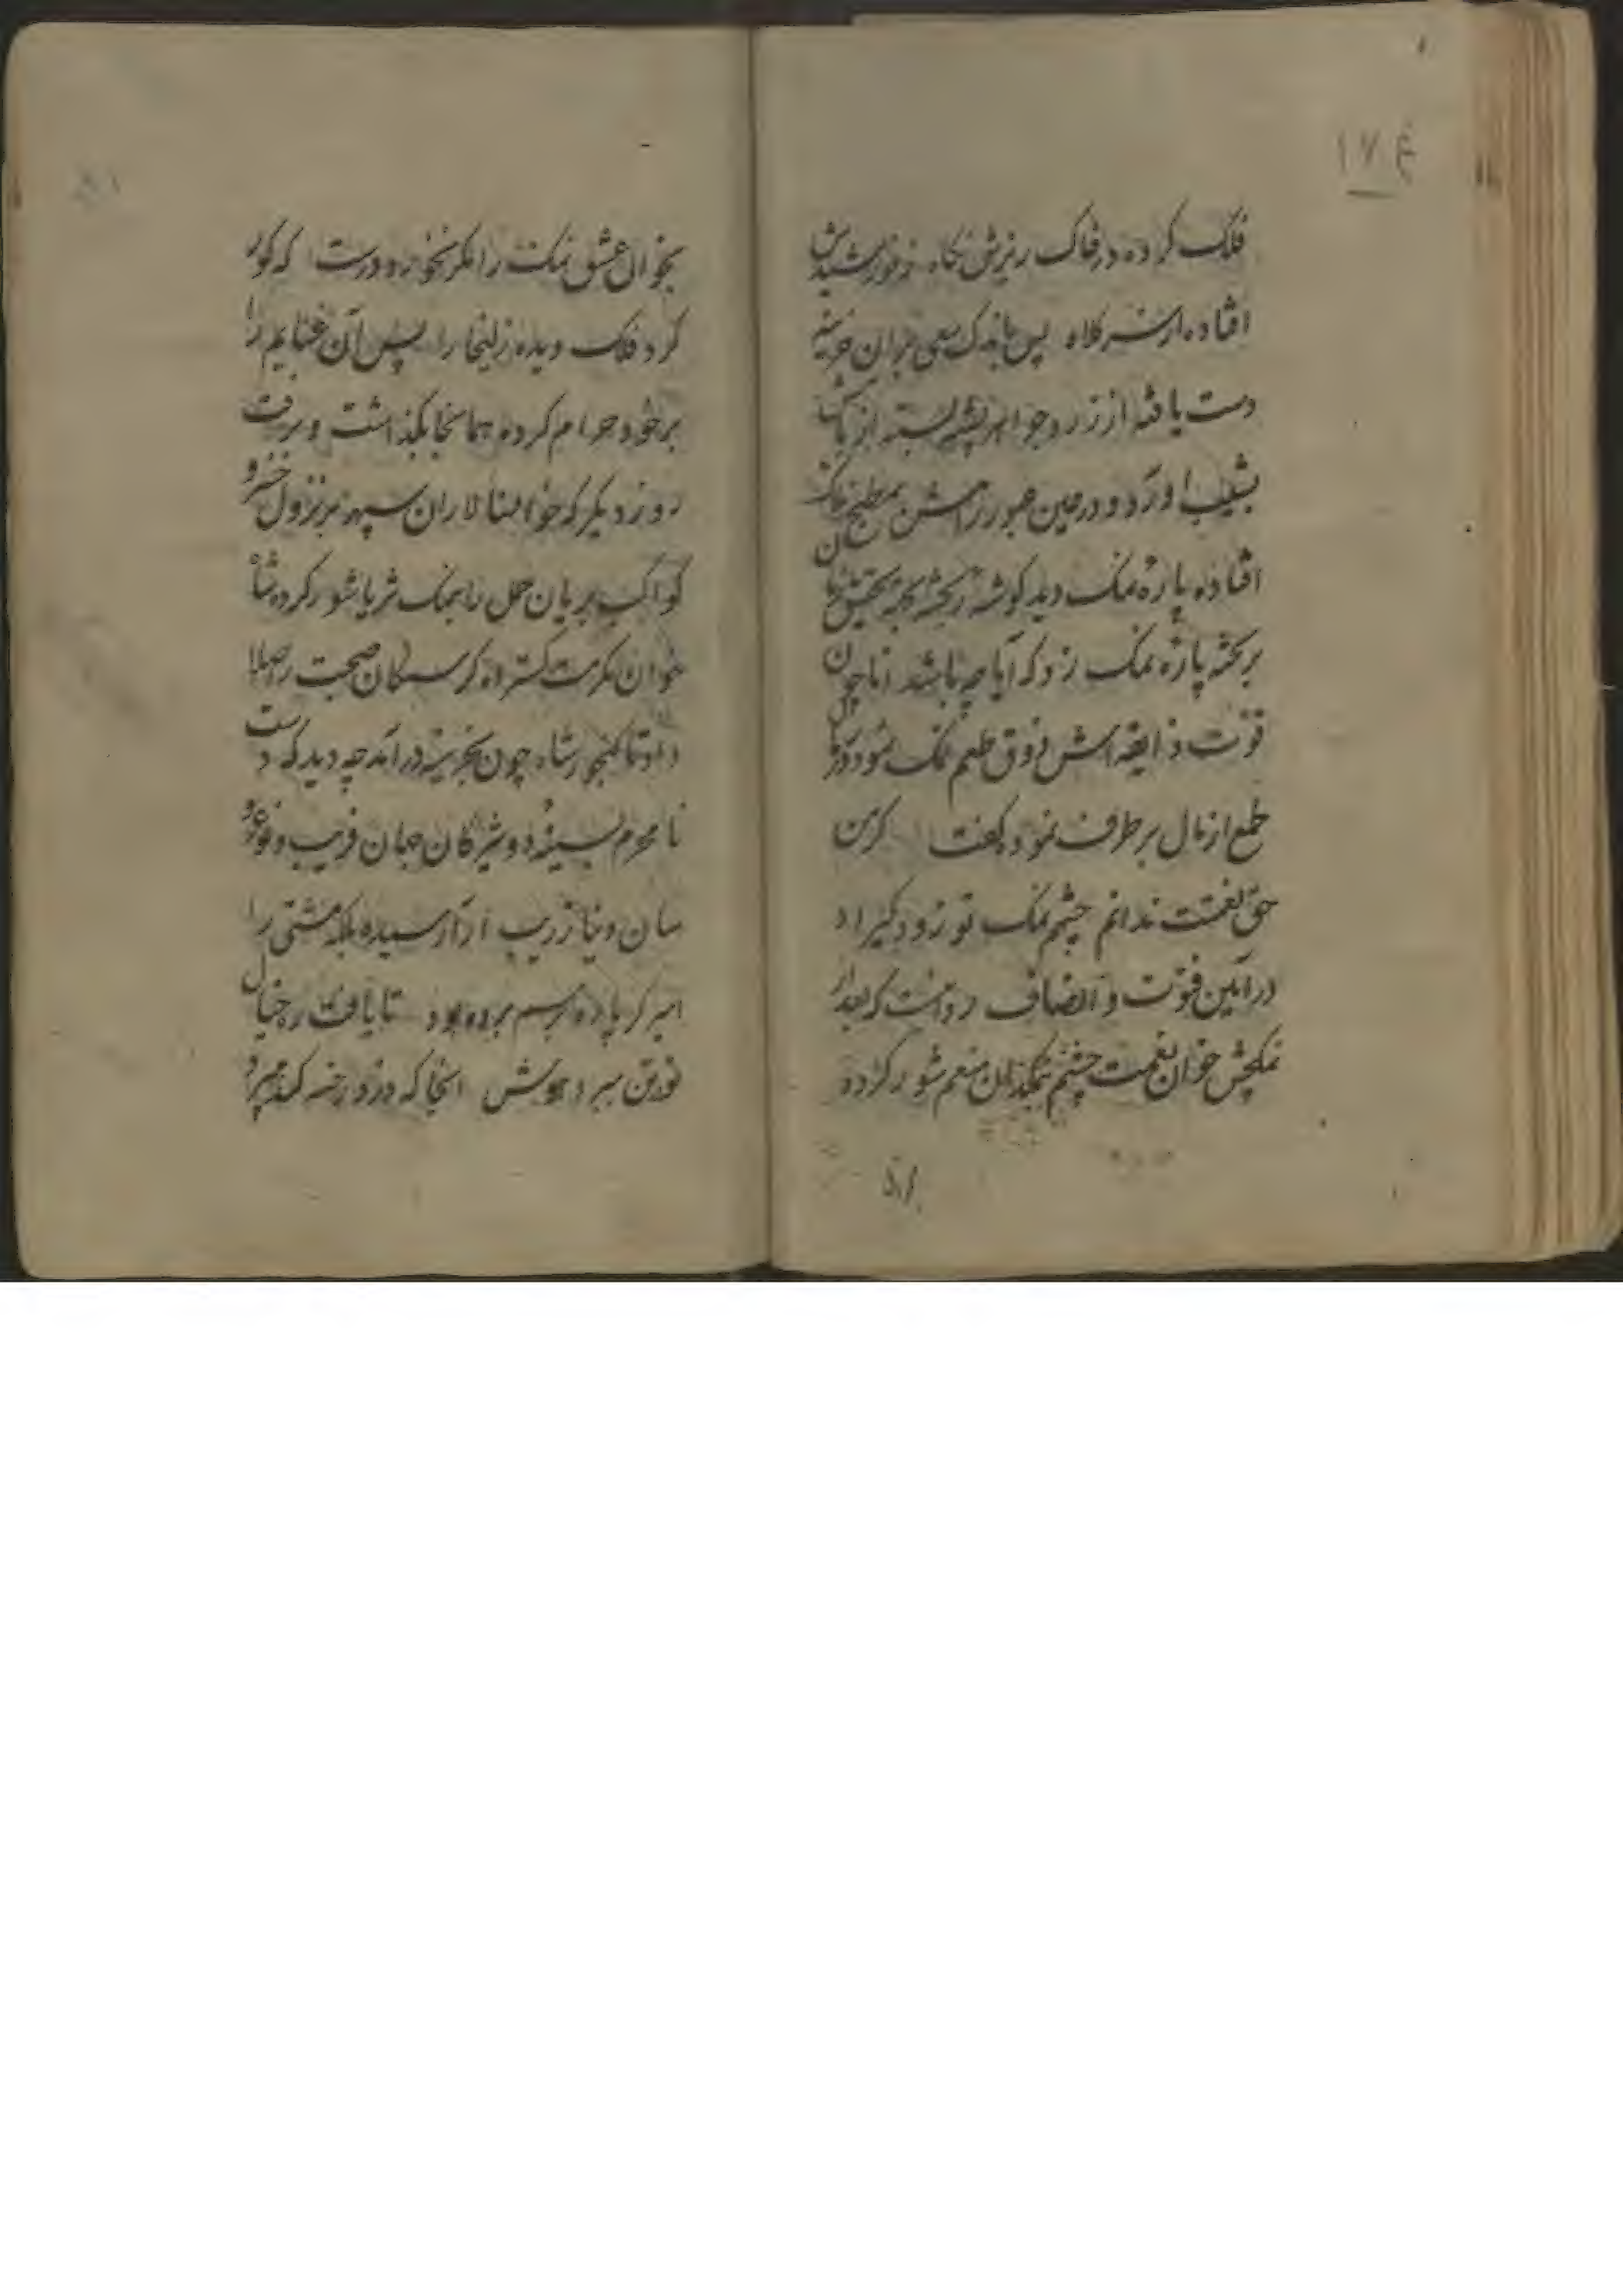 ۱۷۶
فلک کرده در خاک ریزش نکاه ز خورشیدش
افتاده از سر کلاه پس باندک سعی بران خزینه
دست یافته از زر و جواهر پشته بسته از
بنشیب آورد و در حین عبور رامش بمطبخ
افتاده پارهٔ نمک دید کوشه
بر پارهٔ نمک زد که آیا چه باشد اما چون
قوت ذایقه اش ذوق طعم نمک نمود
طمع از مال بر طرف نمود و کفت کر من
حق نعمتت ندانم چشم نمک تو زود گیراد
در آیین فتوت و انصاف که بعد از
نمکچش خوان نعمت چشم نمکدان منعم شور کرده
بخوان عشق نمک را مکر نخورده درست که کور
کرد فلک دیده زلیخا را پس آن غنایم را
بر خود حرام کرده همانجا بگذاشت و برفت
روز دیکر که خوانسالاران سپهر نزول خسرو
کواکب بریان حمل را بنمک ثریا شور کرده شاه
خوان مکرمت کسترده کرسنکان صحبت را صلا
داد تا کنجور شاه چون بخزینه درآمد چه دید که دست
نامحرم بسینهٔ دوشیزکان جهان فریب و
سان دنیا زیب آزار رسیده بلکه مشتی را
اسیر کرباده برسم برده بود تا یافت ره خیال
خوردن ببرد هوش آنجا که دزد رخنه کند میبرد